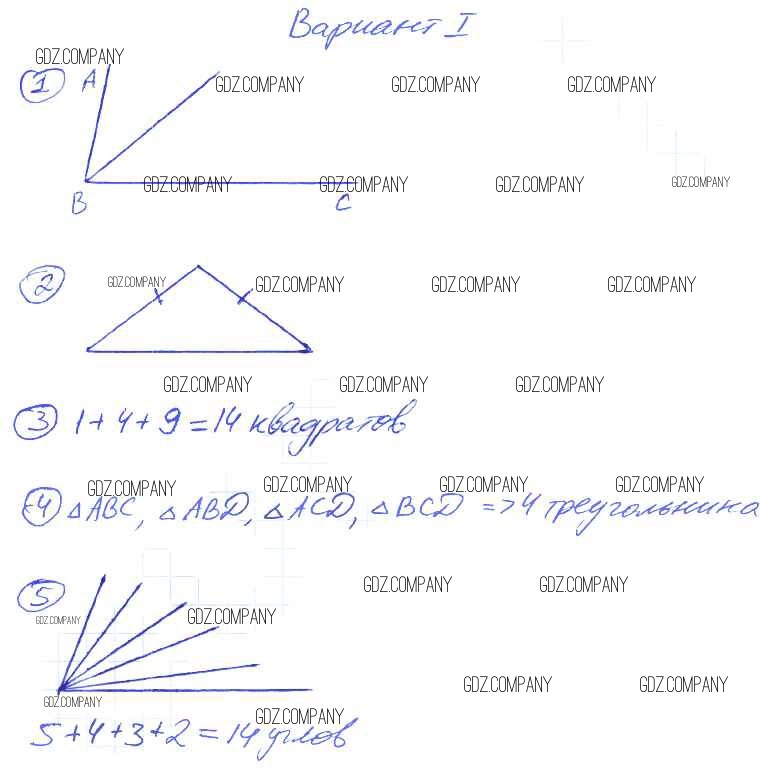 Вариант I
GDZ.COMPANY
① A GDZ.COMPANY GDZ.COMPANY GDZ.COMPANY
GDZ.COMPANY GDZ.COMPANY GDZ.COMPANY GDZ.COMPANY
B C
② GDZ.COMPANY GDZ.COMPANY GDZ.COMPANY GDZ.COMPANY
GDZ.COMPANY GDZ.COMPANY GDZ.COMPANY
③ 1+4+9=14 квадратов
GDZ.COMPANY GDZ.COMPANY GDZ.COMPANY GDZ.COMPANY
④ △ABC, △ABD, △ACD, △BCD => 4 треугольника
GDZ.COMPANY GDZ.COMPANY
⑤
GDZ.COMPANY GDZ.COMPANY
GDZ.COMPANY GDZ.COMPANY GDZ.COMPANY
GDZ.COMPANY
5+4+3+2=14 углов